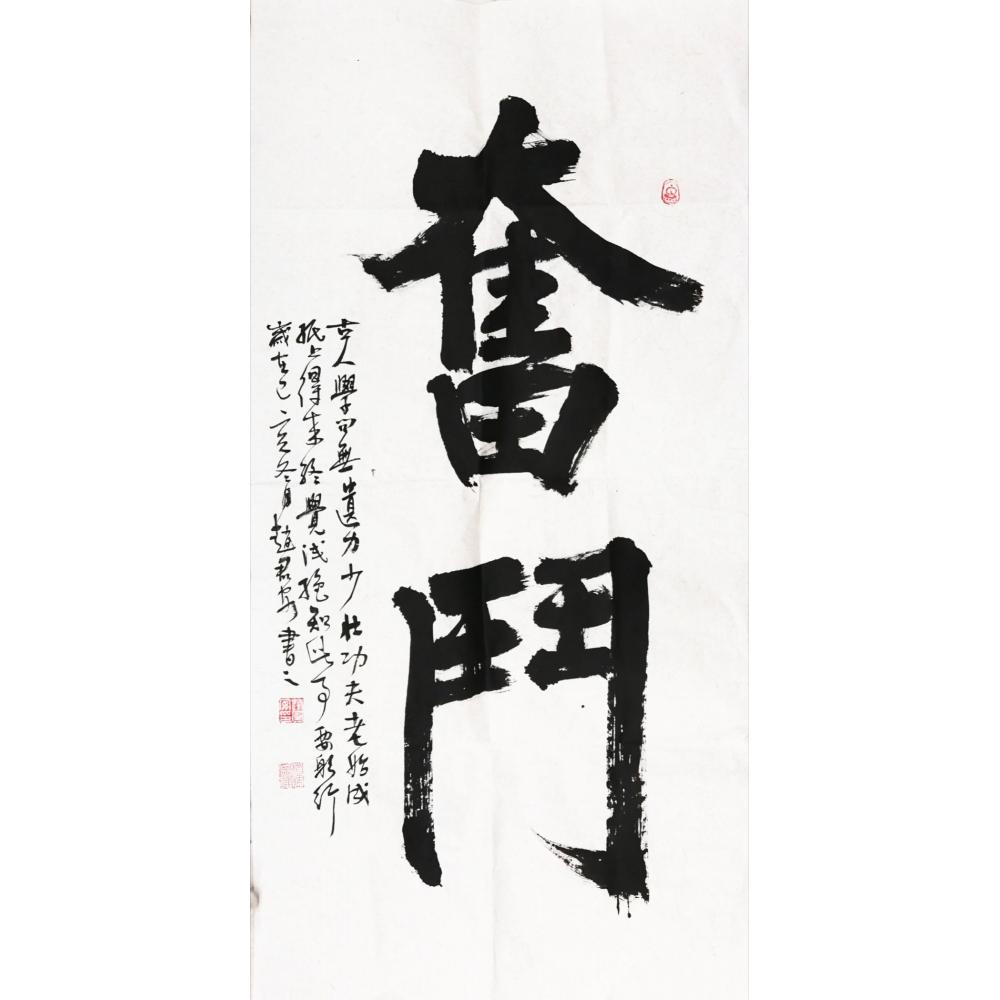 奮鬥
古人學問無遺力少壯功夫老始成
紙上得來終覺淺絕知此事要躬行
歲在己亥冬月趙君安書之